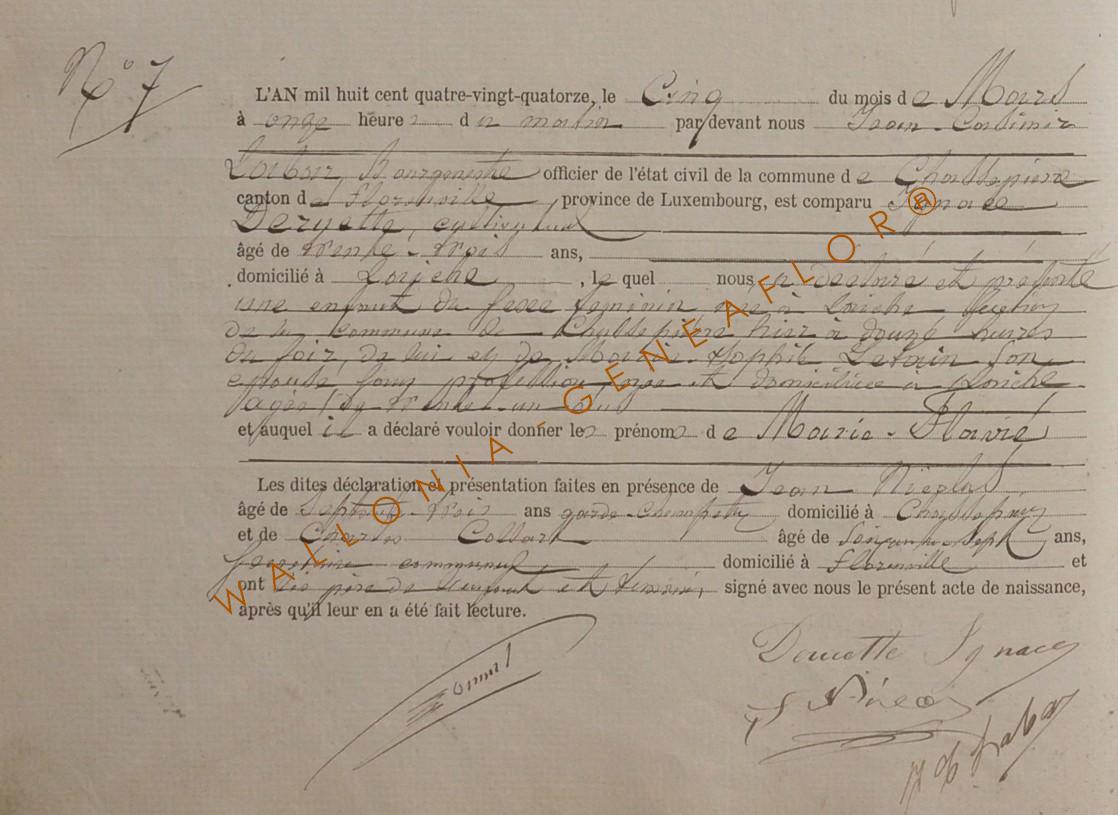 N° 7
L'AN mil huit cent quatre-vingt-quatorze, le Cinq du mois de Mars
à onze heures du matin par devant nous Jean-
Bourgmestre officier de l'état civil de la commune de Chassepierre
canton de Florenville province de Luxembourg, est comparu Ignace
cultivateur
âgé de trente-trois ans,
domicilié à , le quel nous a déclaré et présenté
une enfant du sexe féminin, née à section
de la commune de Chassepierre hier à douze heures
du soir, de lui et de Marie-Sophie son
épouse sans profession, née et domiciliée à
âgée de trente-un ans
et auquel il a déclaré vouloir donner les prénoms de Marie-Flavie
Les dites déclaration et présentation faites en présence de Jean
âgé de Septante-trois ans garde-champêtre domicilié à Chassepierre
et de Charles Collart âgé de Soixante-sept ans,
secrétaire communal domicilié à Florenville et
ont les père de l'enfant et témoins, signé avec nous le présent acte de naissance,
après qu'il leur en a été fait lecture.
Ignace
WALLONIA-GENEAFLOR®